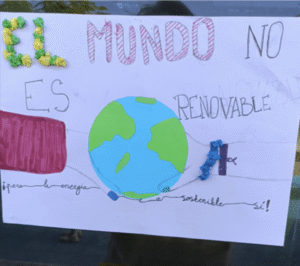 EL MUNDO NO
ES RENOVABLE
¡pero la energía es sostenible sí!